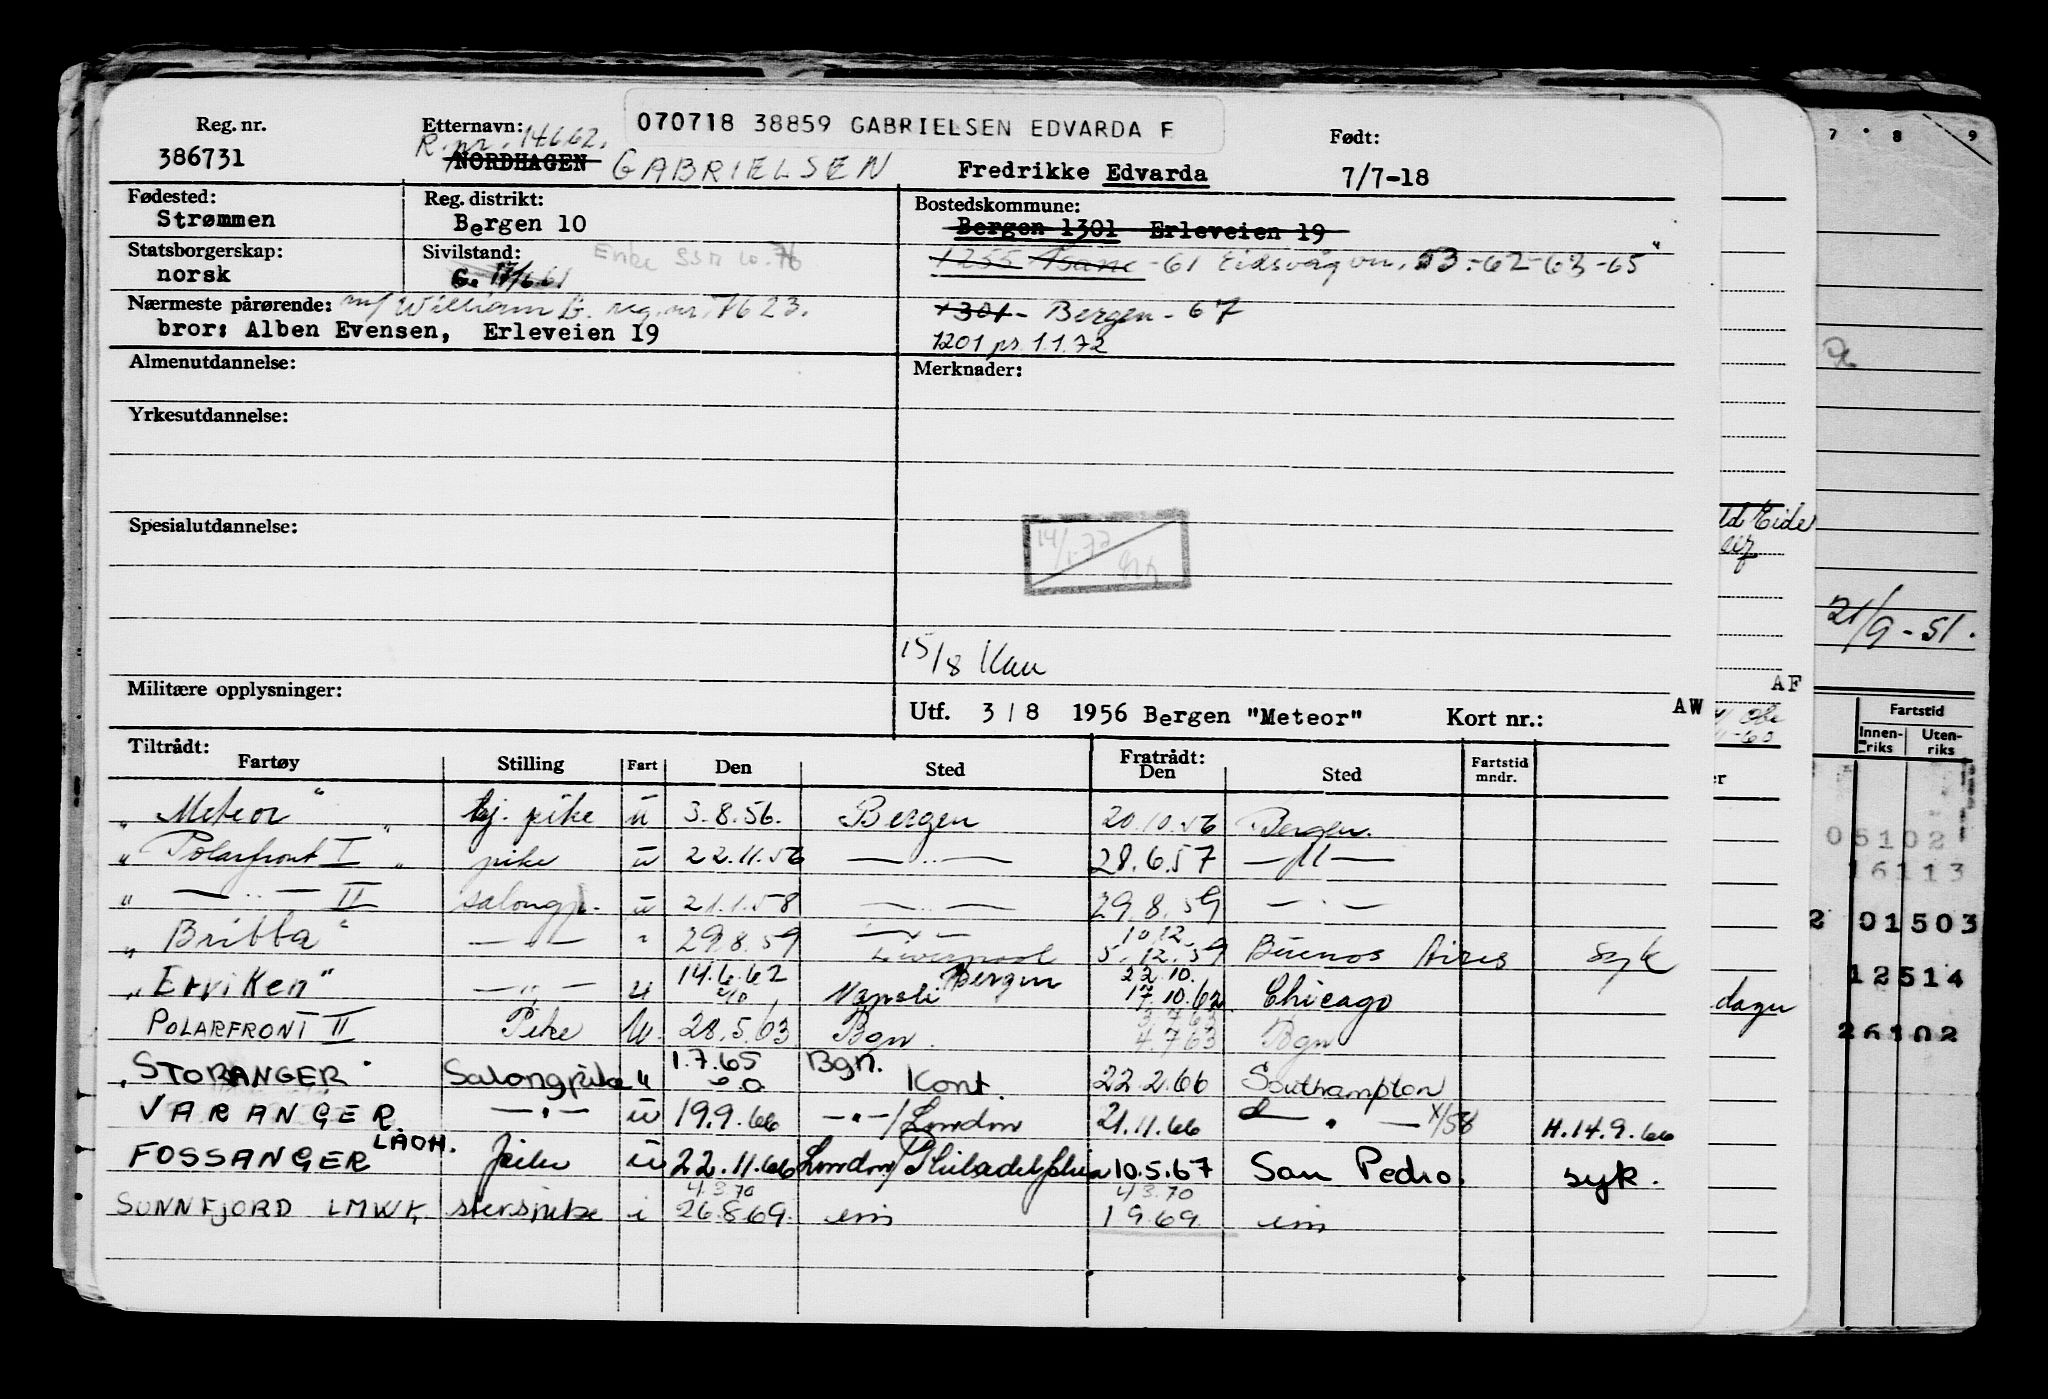 070718 38859 GABRIELSEN EDVARDA F
Reg. nr. Etternavn: Født:
R. nr. 14662.
386731 NORDHAGEN GABRIELSEN Fredrikke Edvarda 7/7-18
Fødested: Reg. distrikt: Bostedskommune:
Strømmen Bergen 10 Bergen 1301 Erleveien 19
Statsborgerskap: Sivilstand: Enke SSR 10.76
norsk G. 17/6.61 1255 Åsane -61 Eidsvågvn. 53.-62-63-65
Nærmeste pårørende: m/ William G. reg.nr. 7623. 1301 - Bergen - 67
bror: Alben Evensen, Erleveien 19
1201 pr. 1.1.72
Almenutdannelse: Merknader:
Yrkesutdannelse:
Spesialutdannelse:
14/1-77
15/8 Kau
Militære opplysninger:
Utf. 3/8 1956 Bergen "Meteor" Kort nr.: AW
Tiltrådt: Fratrådt:
Fartøy Stilling Fart Den Sted Den Sted Fartstid mndr.
"Meteor" bj. pike u 3.8.56. Bergen 20.10.56 Bergen.
"Polarfront I" pike u 22.11.56 — " — 28.6.57 — " —
" — " — II salongp. u 21.1.58 — " — 29.8.59 — " —
"Britta" — " — " 29.8.59 — " — Liverpool 10.12. 5.12.59 Buenos Aires syk
"Erviken" — " — u 14.6.62 Napoli Bergen 22.10. 17.10.62 Chicago
POLARFRONT II Pike u. 28.5.63 Bgn. 3.7.63 4.7.63 Bgn
STORANGER Salongpike " 1.7.65 Bgn. Kont. 22.2.66 Southampton
VARANGER — " — u 19.9.66 — " — / London 21.11.66 — " — X/58 H.14.9.66
FOSSANGER LAOH. pike u 22.11.66 London/Philadelphia 10.5.67 San Pedro. syk.
SUNNFJORD LMWK 4.3.70 4.3.70
i 26.8.69. 1 9.69
7 8 9
ld Eide
21/9-51.
AF
Fartstid
Innenriks Utenriks
05102
16113
2 01503
12514
dager
26102